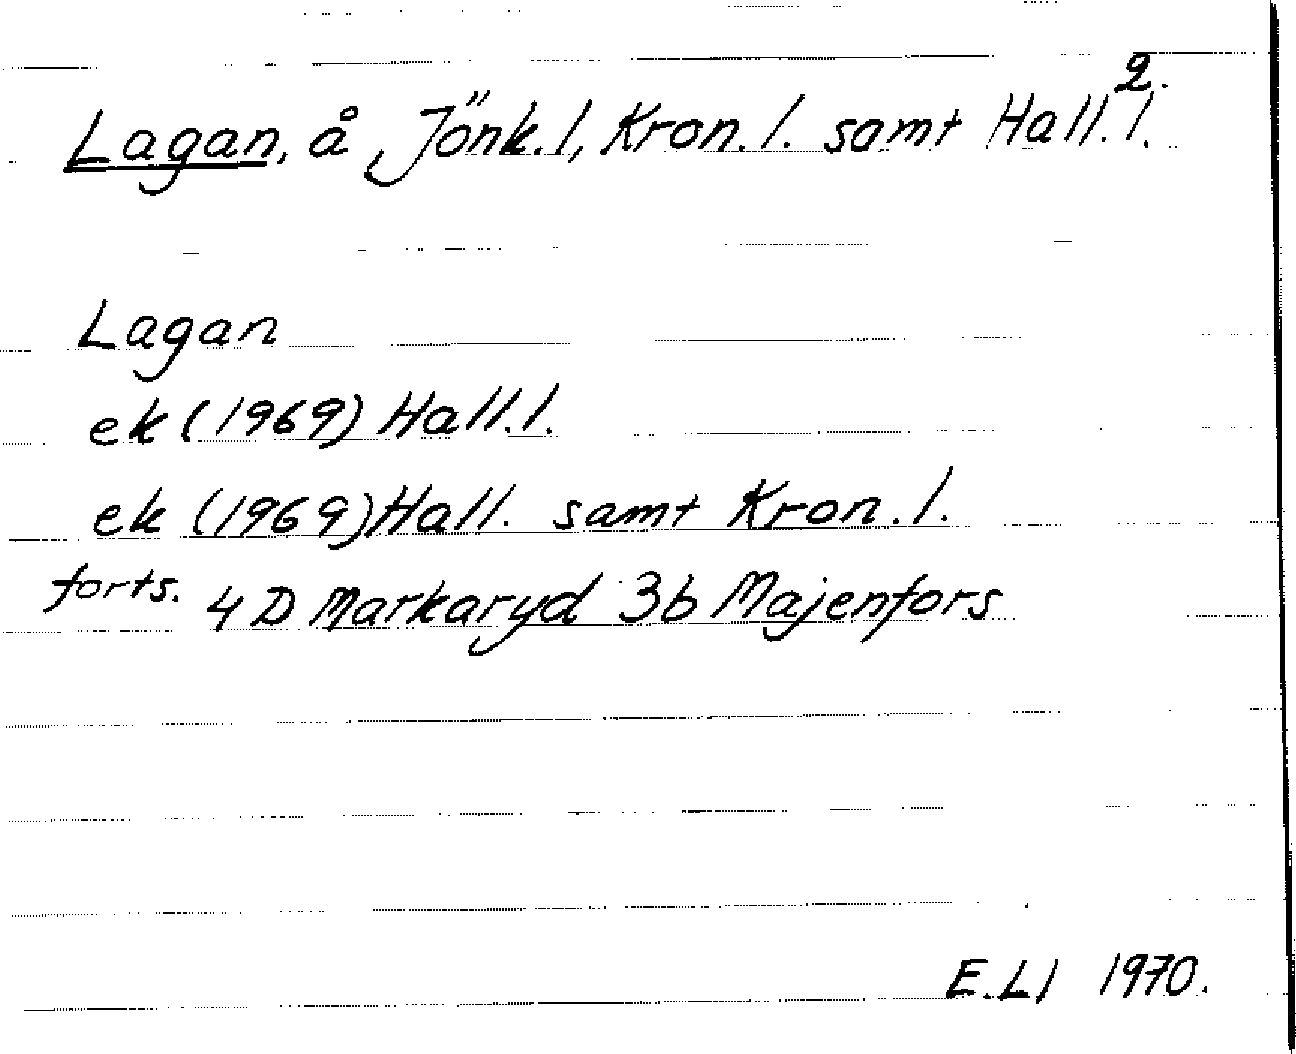 2.
Lagan, å, Jönk.l, Kron.l. samt Hall.l.
Lagan
ek (1969) Hall.l.
ek (1969) Hall. samt Kron.l.
forts. 4 D Markaryd 3b Majenfors
E.Ll 1970.